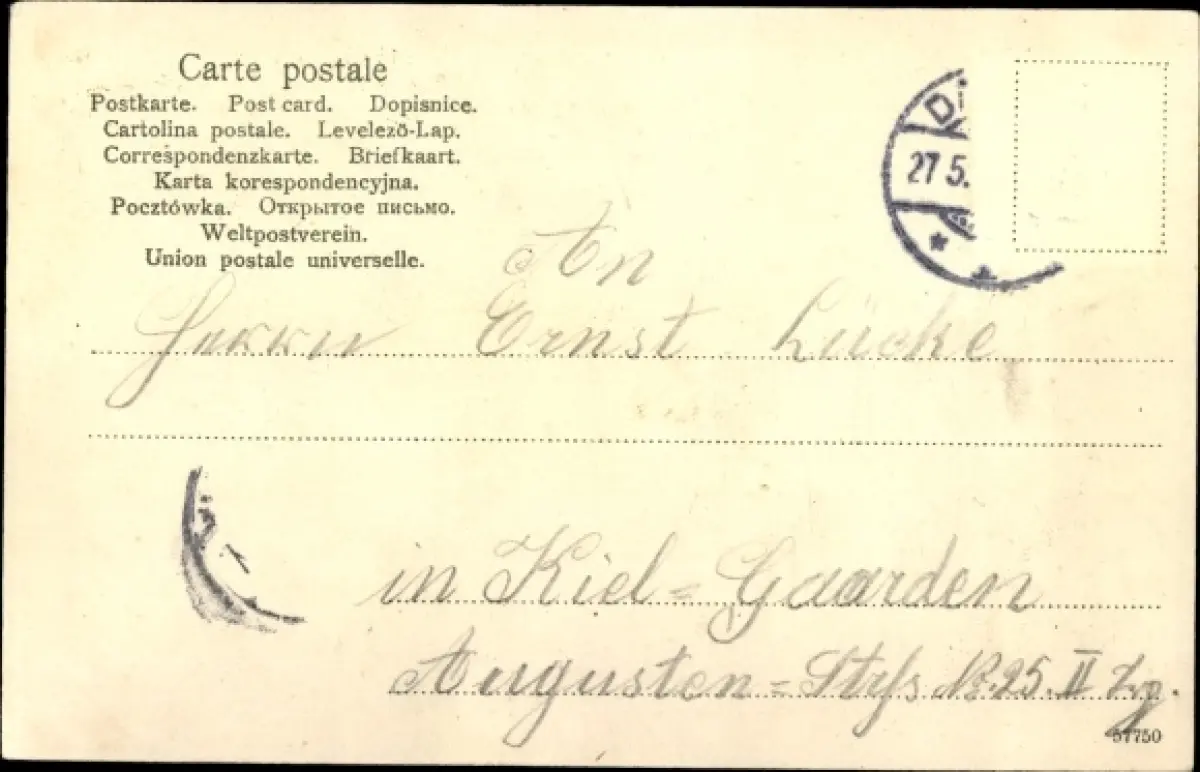 Carte postale
Postkarte. Post card. Dopisnice.
Cartolina postale. Levelező-Lap.
Correspondenzkarte. Briefkaart.
Karta korespondencyjna.
Pocztówka. Открытое письмо.
Weltpostverein.
Union postale universelle.
27 5.
An
Herrn Ernst Lücke
in Kiel=Gaarden
Augusten=Strß No. 25. II
57750